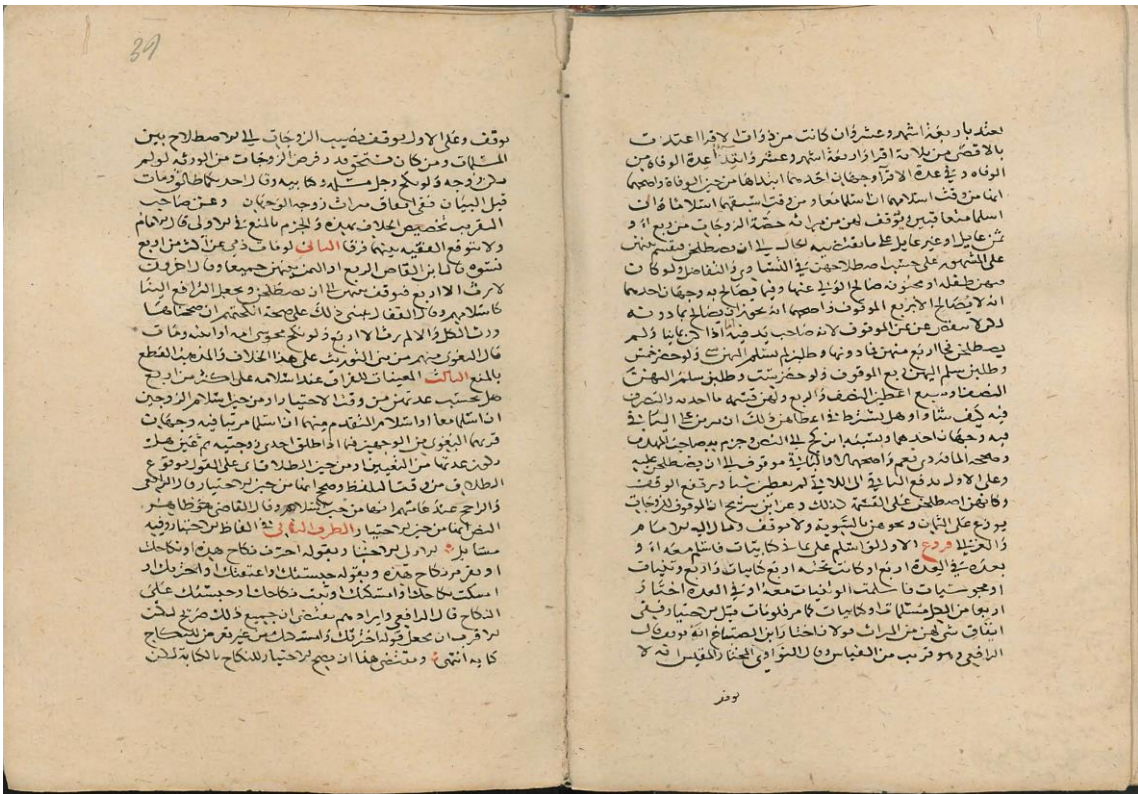 تعتد باربعة اشهر وعشر وان كانت من ذوات الاقراء اعتدت
بالاقصى من ثلاثة اقراء واربعة اشهر وعشر وابتداء عدة الوفاة من
الوفاة وفي عدة الاقراء وجهان احدهما ابتداها من حين الوفاة واصحهما
انها من وقت اسلامهما ان اسلما معا ومن وقت اسبقهما اسلاما ان
اسلما متعاقبين ويوقف لهن من ميراثه حصة الزوجات من ربع او
ثمن عايل او غير عايل على ما يقتضيه الحال الى ان يصطلحن فيقسم بينهن
على المشهور على حسب اصطلاحهن في التساوي والتفاضل ولو كان
فيهن طفلة او مجنونة صالح الولي عنها وفيما يصالح به وجهان احدهما
انه لا يصالح الا بربع الموقوف واصحهما انه يجوز ان يصالح بما دونه
لكن لا ينقص عن ثمن الموقوف لانه صاحب يد فيه اذا كن ثمانيا ولم
يصطلحن فجا اربع منهن فما دونها وطلبن لم نسلم اليهن شي ولو حضر خمس
وطلبن سلم اليهن ربع الموقوف ولو حضر ست وطلبن سلم اليهن
النصف او سبع اعطين النصف والربع ولهن قسمة ما اخذنه والتصرف
فيه كيف شاوا وهل يشترط في اعطاهن ذلك ان يبرين عن الباقي
فيه وجهان احدهما ونسبه ابن كج الى النص وجزم به صاحب المهذب
وصححه الماوردي نعم واصحهما لا والباقي موقوف الى ان يصطلحن عليه
وعلى الاول يدفع الباقي الى اللاتي لم يعطين شيا ويرتفع الوقف
وكانهن اصطلحن على القسمة كذلك وعن ابن سريج ان الموقوف للزوجات
يوزع على الثمان وبحوهن بالسوية ولا موقف ومال اليه الامام
والغزالي فروع الاول لو اسلم على ثمان كتابيات فاسلم معه او
بعده في العدة اربع او كانت تحته اربع كتابيات واربع وثنيات
او مجوسيات فاسلمت الوثنيات معه او في العدة اختار
اربعا من الكل مسلمات او كتابيات كما مر فلو مات قبل الاختيار ففي
ايقاف شي لهن من الميراث اختار ابن الصباغ انه يوقف قال
الرافعي وهو قريب من القياس وقال النواوي المختار المقيس انه لا
يوقف
39
يوقف وعلى الاول يوقف نصيب الزوجات الى الاصطلاح بين
المسلمات ومن كان فتحقق قدر فرض الزوجات من الورثة لو لم
يكن زوجة ولو نكح رجل مسلمة وكتابية وقال احديكما طالق ومات
قبل البيان ففي ايقاف ميراث زوجة الوجهان وعن صاحب
التقريب تخصيص الخلاف بهذه والجزم بالمنع في الاولى قال الامام
ولا يتوقع الفقيه بينهما فرقا الثاني لو مات ذمي عن اكثر من اربع
نسوة قال ابن القاص الربع او الثمن بينهن جميعا وقال اخرون
لا يرث الا اربع فيوقف بينهن الى ان يصطلحن ويجعل الترافع الينا
كاسلامهم وقال القفال يبنى ذلك على صحة انكحتهم ان صححناها
ورث الكل والا لم يرث الا اربع ولو نكح مجوسي امه او ابنته ومات
قال البغوي منهم من بنى التوريث على هذا الخلاف والمذهب القطع
بالمنع الثالث المعينات للفراق عند اسلامه على اكثر من اربع
هل يحسب عدتهن من وقت الاختيار او من حين اسلام الزوجين
ان اسلما معا او اسلام المتقدم منهما ان اسلما مرتبا فيه وجهان
قربهما البغوي من الوجهين فيما اذا طلق احدى زوجتيه ثم عين هل
يكون عدتها من التعيين او من حين الطلاق اي على القول بوقوع
الطلاق من وقت التلفظ وصحح انها من حين الاختيار قال الرافعي
والراجح عند عامتهم انها من حين الاسلام وقال القاضي هو ظاهر
النص انها من حين الاختيار الطرف الثاني في الفاظ الاختيار وفيه
مسائل الاولى الاختيار بقوله اخترت نكاح هذه او نكاحك
او تقرير نكاح هذه وبقوله حبستك او عقدتك او اخترتك او
امسكت نكاحك او امسكتك او ثبت نكاحك او حبستك على
النكاح قال الرافعي وايرادهم يقتضي ان جميع ذلك صريح لكن
الاقرب ان يجعل قوله اخترتك وامسكتك من غير تعرض للنكاح
كناية انتهى ومقتضى هذا ان يصح الاختيار للنكاح بالكناية لكن